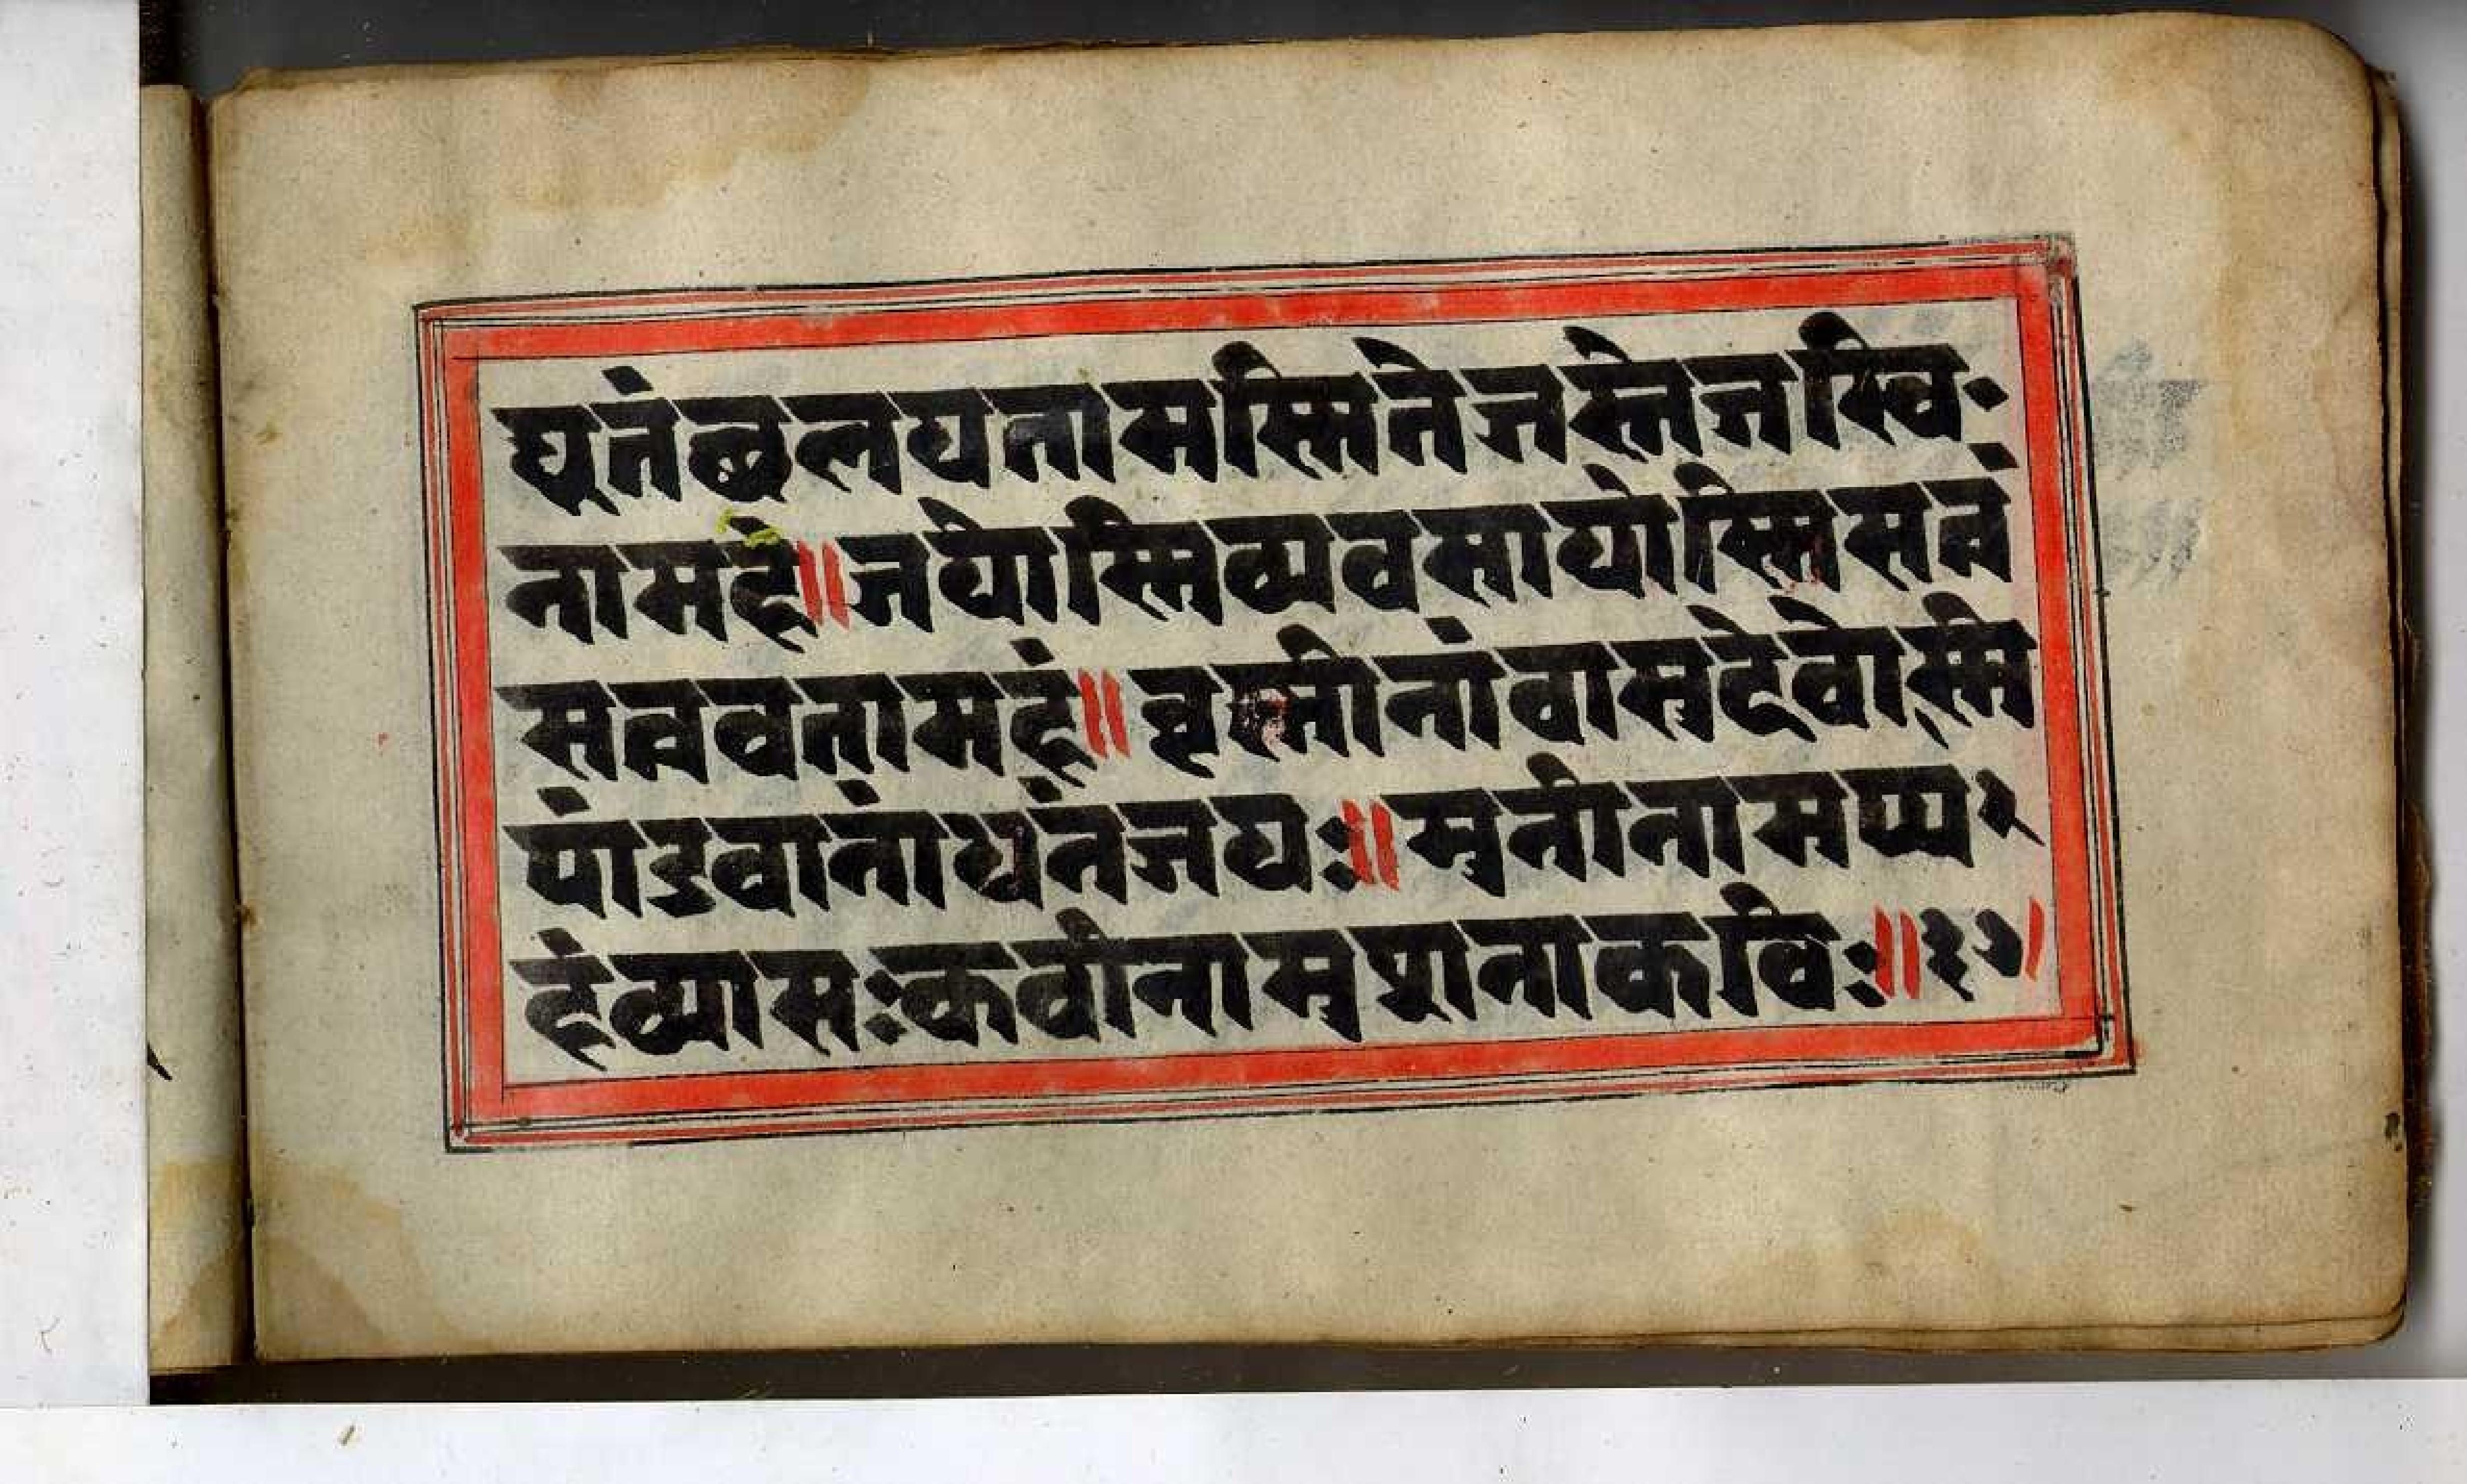 द्यूतंछलयतामस्मितेजस्तेजस्वि-
नामहं॥जयोस्मिव्यवसायोस्मिसत्वं
सत्ववतामहं॥वृस्नीनांवासुदेवोस्मि
पांडवानांधनंजयः॥मुनीनामप्य
हंव्यासःकवीनामुशनाकविः॥३७।